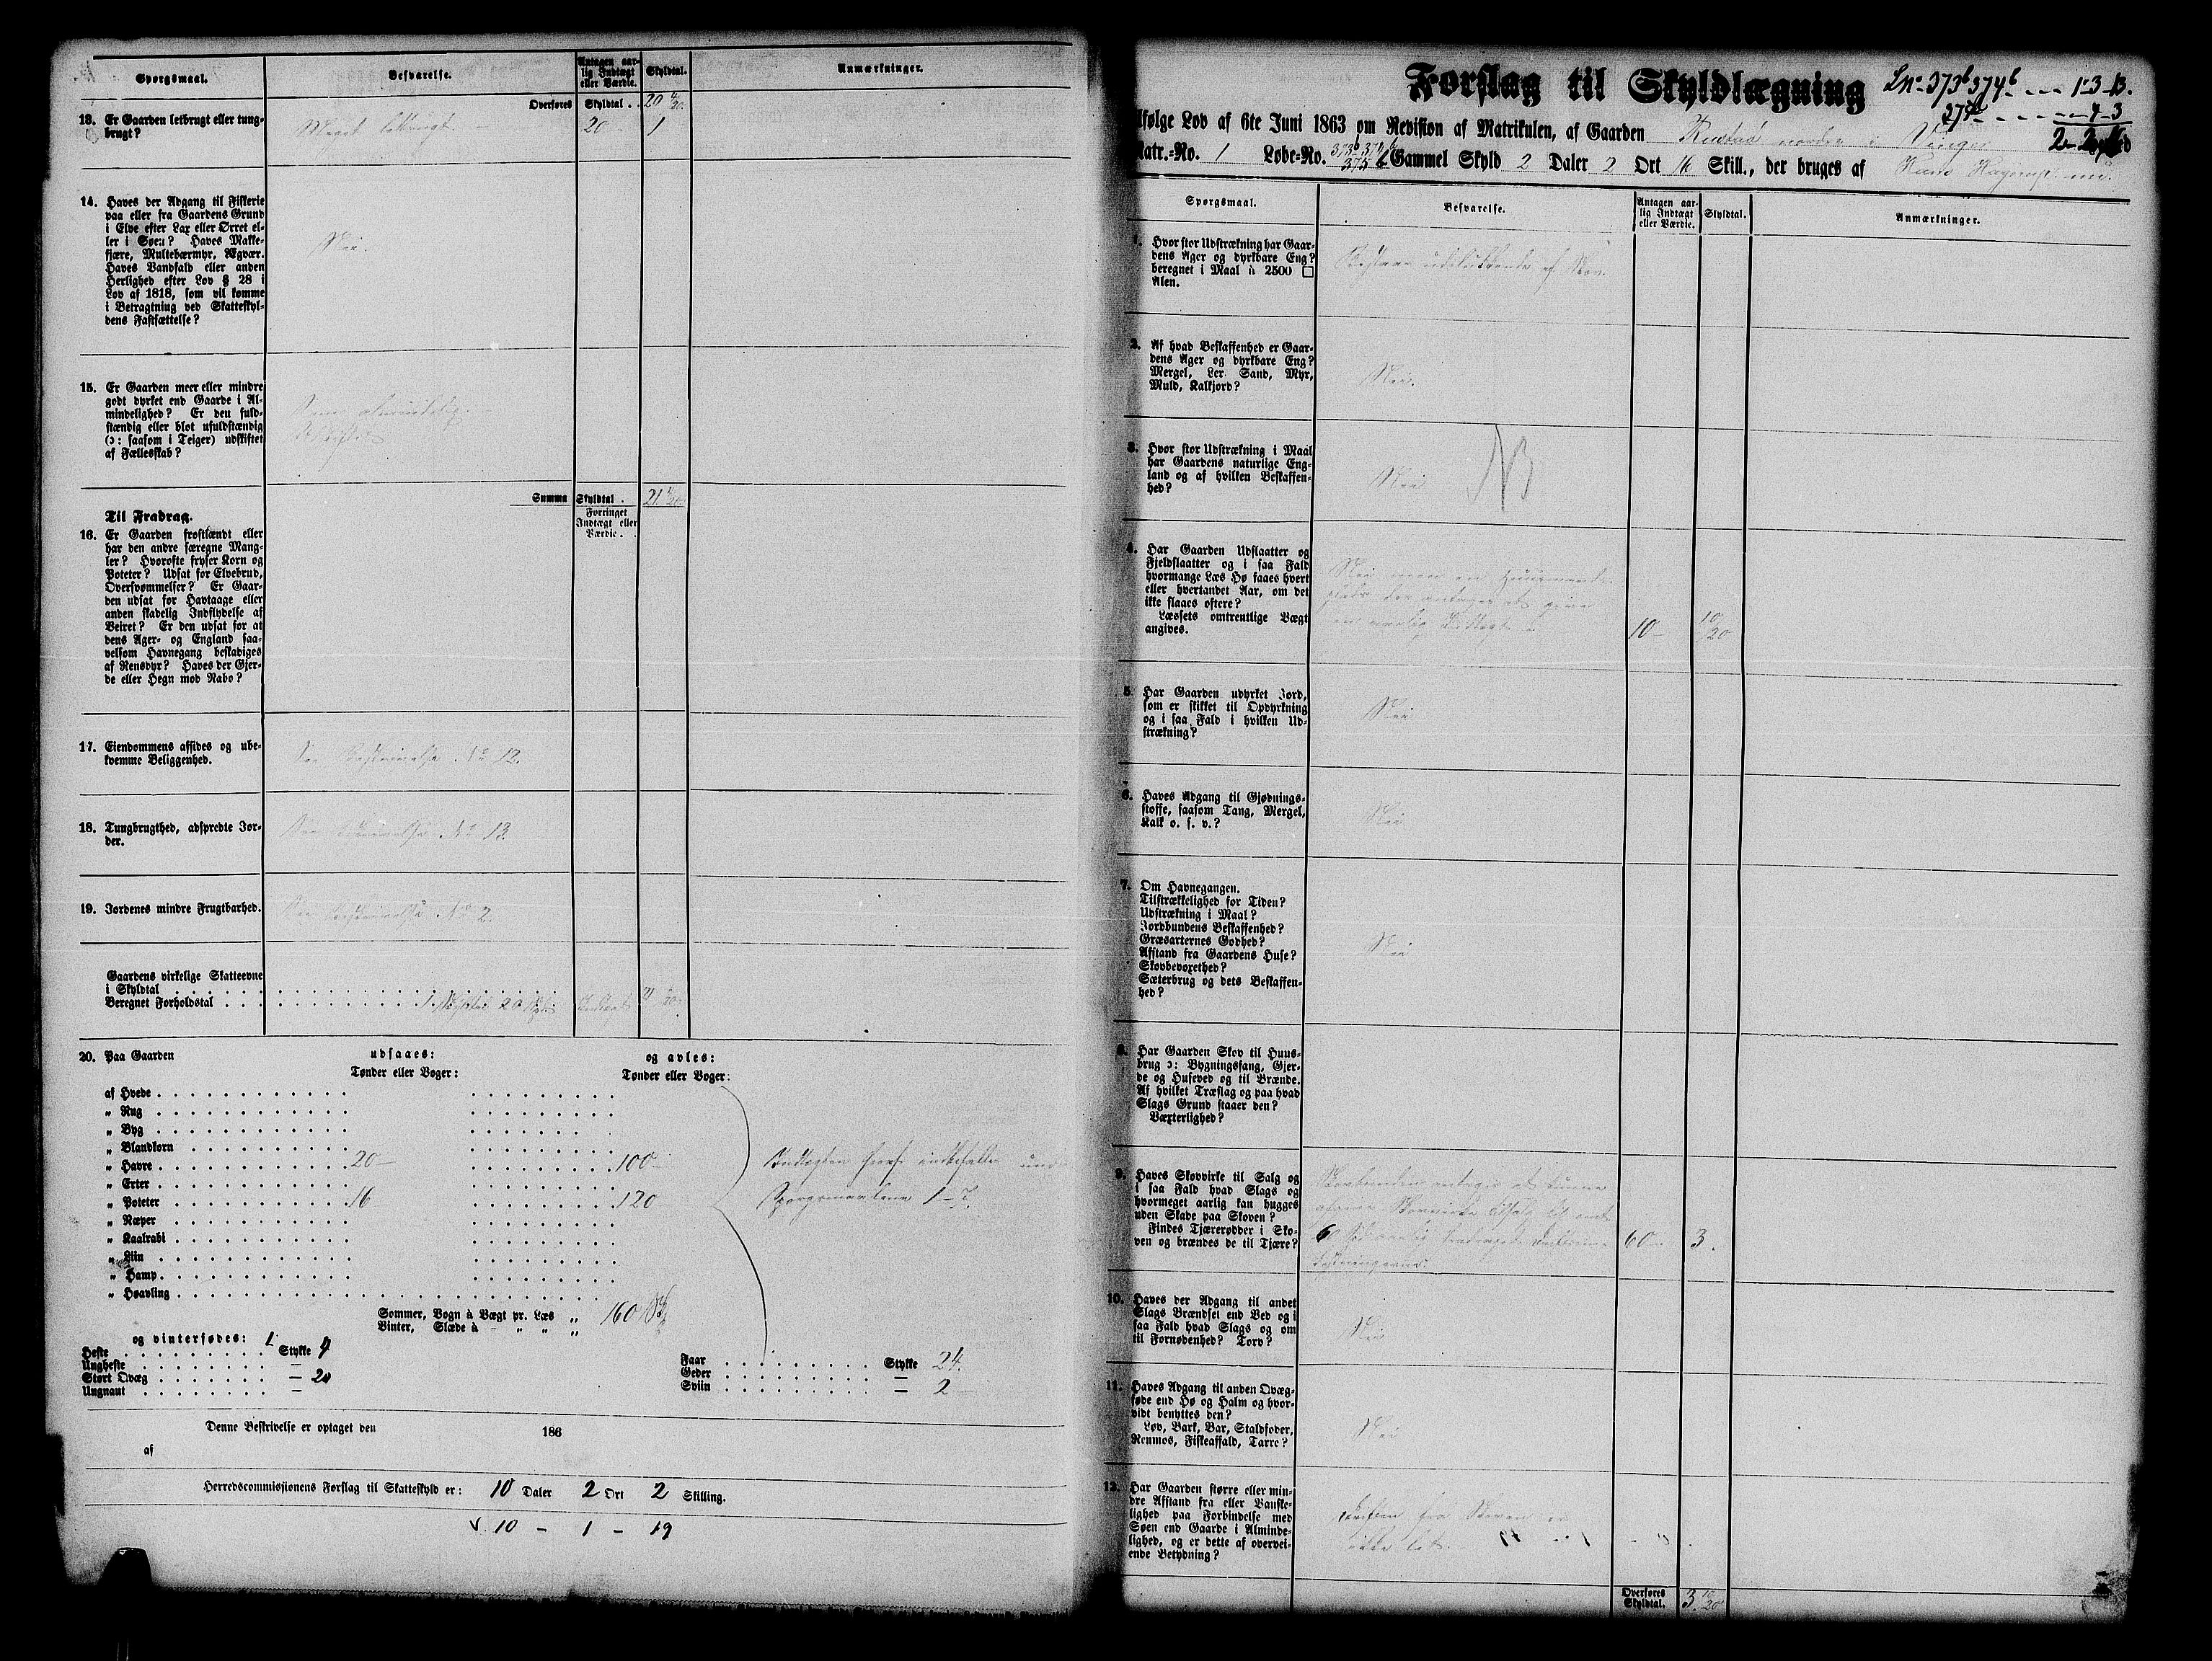 Spørgsmaal.
Besvarelse.
Antagen aar-
lig Indtægt
eller Værdie.
Skyldtal.
Anmærkninger.
Overføres Skyldtal . 20 4/20
13. Er Gaarden letbrugt eller tung-
brugt?
Meget letbrugt. 20 1
14. Haves der Adgang til Fiskerie
paa eller fra Gaardens Grund
i Elve efter Lax eller Ørret el-
ler i Søen? Haves Makke-
fjære, Multebærmyr, Ægvær.
Haves Vandfald eller anden
Herlighed efter Lov § 28 i
Lov af 1818, som vil komme
i Betragtning ved Skatteskyl-
dens Fastsættelse?
Nei.
15. Er Gaarden meer eller mindre
godt dyrket end Gaarde i Al-
mindelighed? Er den fuld-
stændig eller blot ufuldstændig
(ɔ: saasom i Teiger) udskiftet
af Fællesskab?
Som almindelig.
Summa Skyldtal . 21 4/20
Til Fradrag.
Forringet
Indtægt eller
Værdie.
16. Er Gaarden frostlændt eller
har den andre særegne Mang-
ler? Hvorofte fryser Korn og
Poteter? Udsat for Elvebrud,
Oversvømmelser? Er Gaar-
den udsat for Havtaage eller
anden skadelig Indflydelse af
Veiret? Er den udsat for at
dens Ager- og England saa-
velsom Havnegang beskadiges
af Rensdyr? Haves der Gjer-
de eller Hegn mod Nabo?
17. Eiendommens afsides og ube-
kvemme Beliggenhed.
See Beskrivelse No 12.
18. Tungbrugthed, adspredte Jor-
der.
See Beskrivelse No 13.
19. Jordenes mindre Frugtbarhed.
See Beskrivelse No 2.
Gaardens virkelige Skatteevne
i Skyldtal
Beregnet Forholdstal
20. Paa Gaarden udsaaes: og avles:
Tønder eller Voger: Tønder eller Voger:
af Hvede
„ Rug
„ Byg
„ Blandkorn
„ Havre 20 100
„ Erter
„ Poteter 16 120
„ Næper
„ Kaalrabi
„ Liin
„ Hamp
„ Høavling
Indtægten heraf indbefattet under
Spørgsmaalene 1-7.
Sommer, Vogn à Vægt pr. Læs „ 160
Vinter, Slæde à — „ „ „
og vinterfødes:
Heste Stykke 4
Ungheste —
Stort Qvæg — 20
Ungnaut —
Faar Stykke 24
Geder —
Sviin — 2
Denne Beskrivelse er optaget den 186
af
Herredscommissionens Forslag til Skatteskyld er: 10 Daler 2 Ort 2 Skilling.
10 - 1 - 19
Forslag til Skyldlægning
Ln. 373b 374b - - - 1-3-13.
375b - - - - 4-3
ifølge Lov af 6te Juni 1863 om Revision af Matrikulen, af Gaarden Rustad nordre i Vinger
Matr.-No. 1 Løbe-No. 373b 374b 375b Gammel Skyld 2 Daler 2 Ort 16 Skill., der bruges af Hans
Spørgsmaal.
Besvarelse.
Antagen aar-
lig Indtægt
eller Værdie.
Skyldtal.
Anmærkninger.
1. Hvor stor Udstrækning har Gaar-
dens Ager og dyrkbare Eng?
beregnet i Maal à 2500 □
Alen.
Bestaar udelukkende af Skov.
2. Af hvad Beskaffenhed er Gaar-
dens Ager og dyrkbare Eng?
Mergel, Ler, Sand, Myr,
Muld, Kalkjord?
Nei.
3. Hvor stor Udstrækning i Maal
har Gaardens naturlige Eng-
land og af hvilken Beskaffen-
hed?
Nei NB
4. Har Gaarden Udslaatter og
Fjeldslaatter og i saa Fald
hvormange Læs Hø faaes hvert
eller hvertandet Aar, om det
ikke slaaes oftere?
Læssets omtrentlige Vægt
angives.
Nei men en Huusmands-
plads der antages at give
en aarlig Indtægt 10 10/20
5. Har Gaarden udyrket Jord,
som er skikket til Opdyrkning
og i saa Fald i hvilken Ud-
strækning?
Nei
6. Haves Adgang til Gjødnings-
stoffe, saasom Tang, Mergel,
Kalk o. s. v.?
Nei
7. Om Havnegangen.
Tilstrækkelighed for Tiden?
Udstrækning i Maal?
Jordbundens Beskaffenhed?
Græsarternes Godhed?
Afstand fra Gaardens Huse?
Skovbevoxethed?
Sæterbrug og dets Beskaffen-
hed?
Nei
8. Har Gaarden Skov til Huus-
brug ɔ: Bygningsfang, Gjer-
de og Huseved og til Brænde.
Af hvilket Træslag og paa hvad
Slags Grund staaer den?
Væxterlighed?
9. Haves Skovvirke til Salg og
i saa Fald hvad Slags og
hvormeget aarlig kan hugges
uden Skade paa Skoven?
Findes Tjærerødder i Sko-
ven og brændes de til Tjære?
antages at kunne
60 3.
10. Haves der Adgang til andet
Slags Brændsel end Ved og i
saa Fald hvad Slags og om
til Fornødenhed? Torv?
Nei
11. Haves Adgang til anden Qvæg-
føde end Hø og Halm og hvor-
vidt benyttes den?
Løv, Bark, Bar, Staldfoder,
Renmos, Fiskeaffald, Tarre?
Nei
12. Har Gaarden større eller min-
dre Afstand fra eller Vanske-
lighed paa Forbindelse med
Søen end Gaarde i Alminde-
lighed, og er dette af overvei-
ende Betydning?
Driften fra Skoven er
ikke let.
Overføres
Skyldtal. 3 10/20